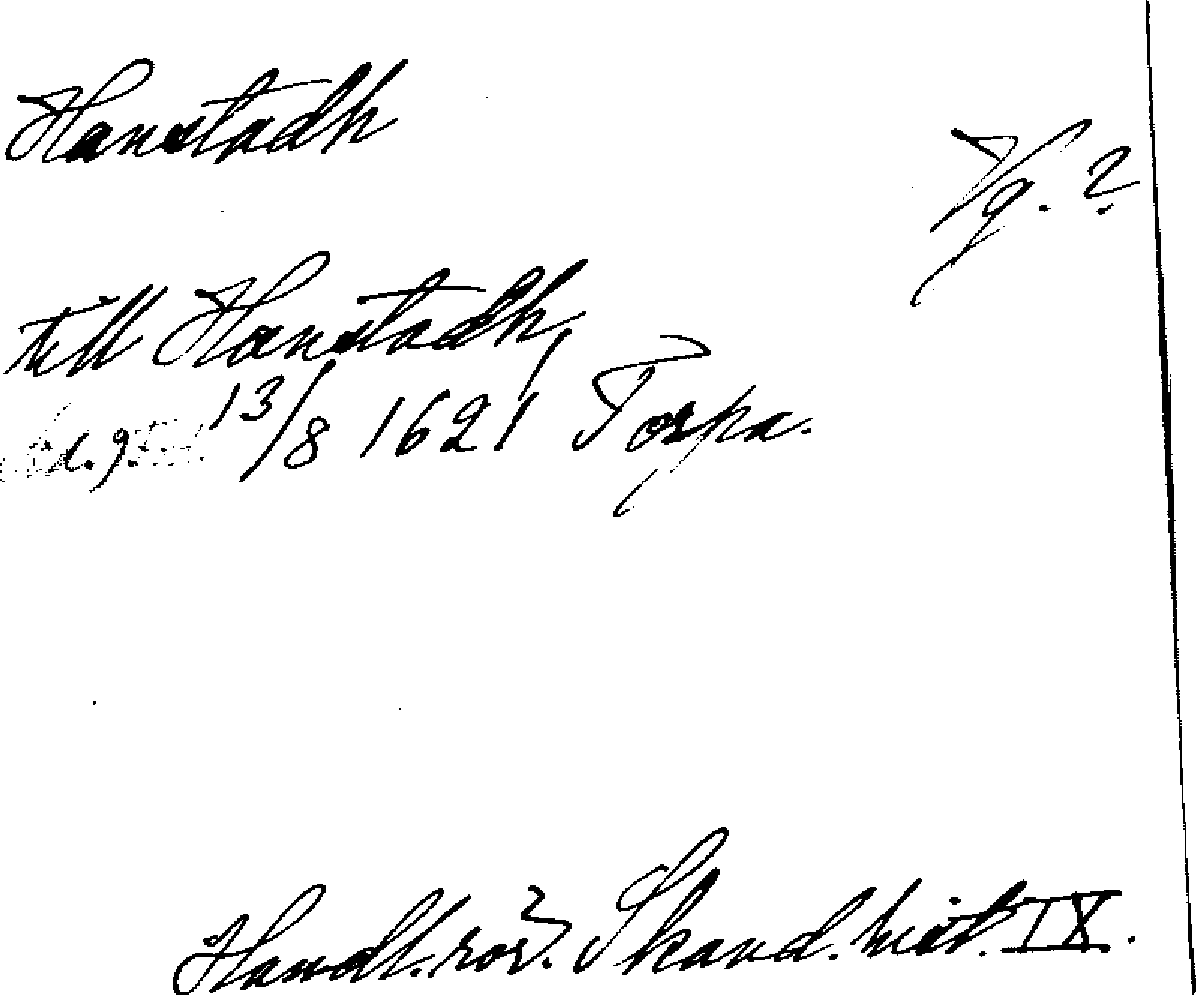 Hanstadh
Vg. ?
till Hanstadh,
13/8 1621 Torpa.
Handl. rör. Skand. hist. IX.